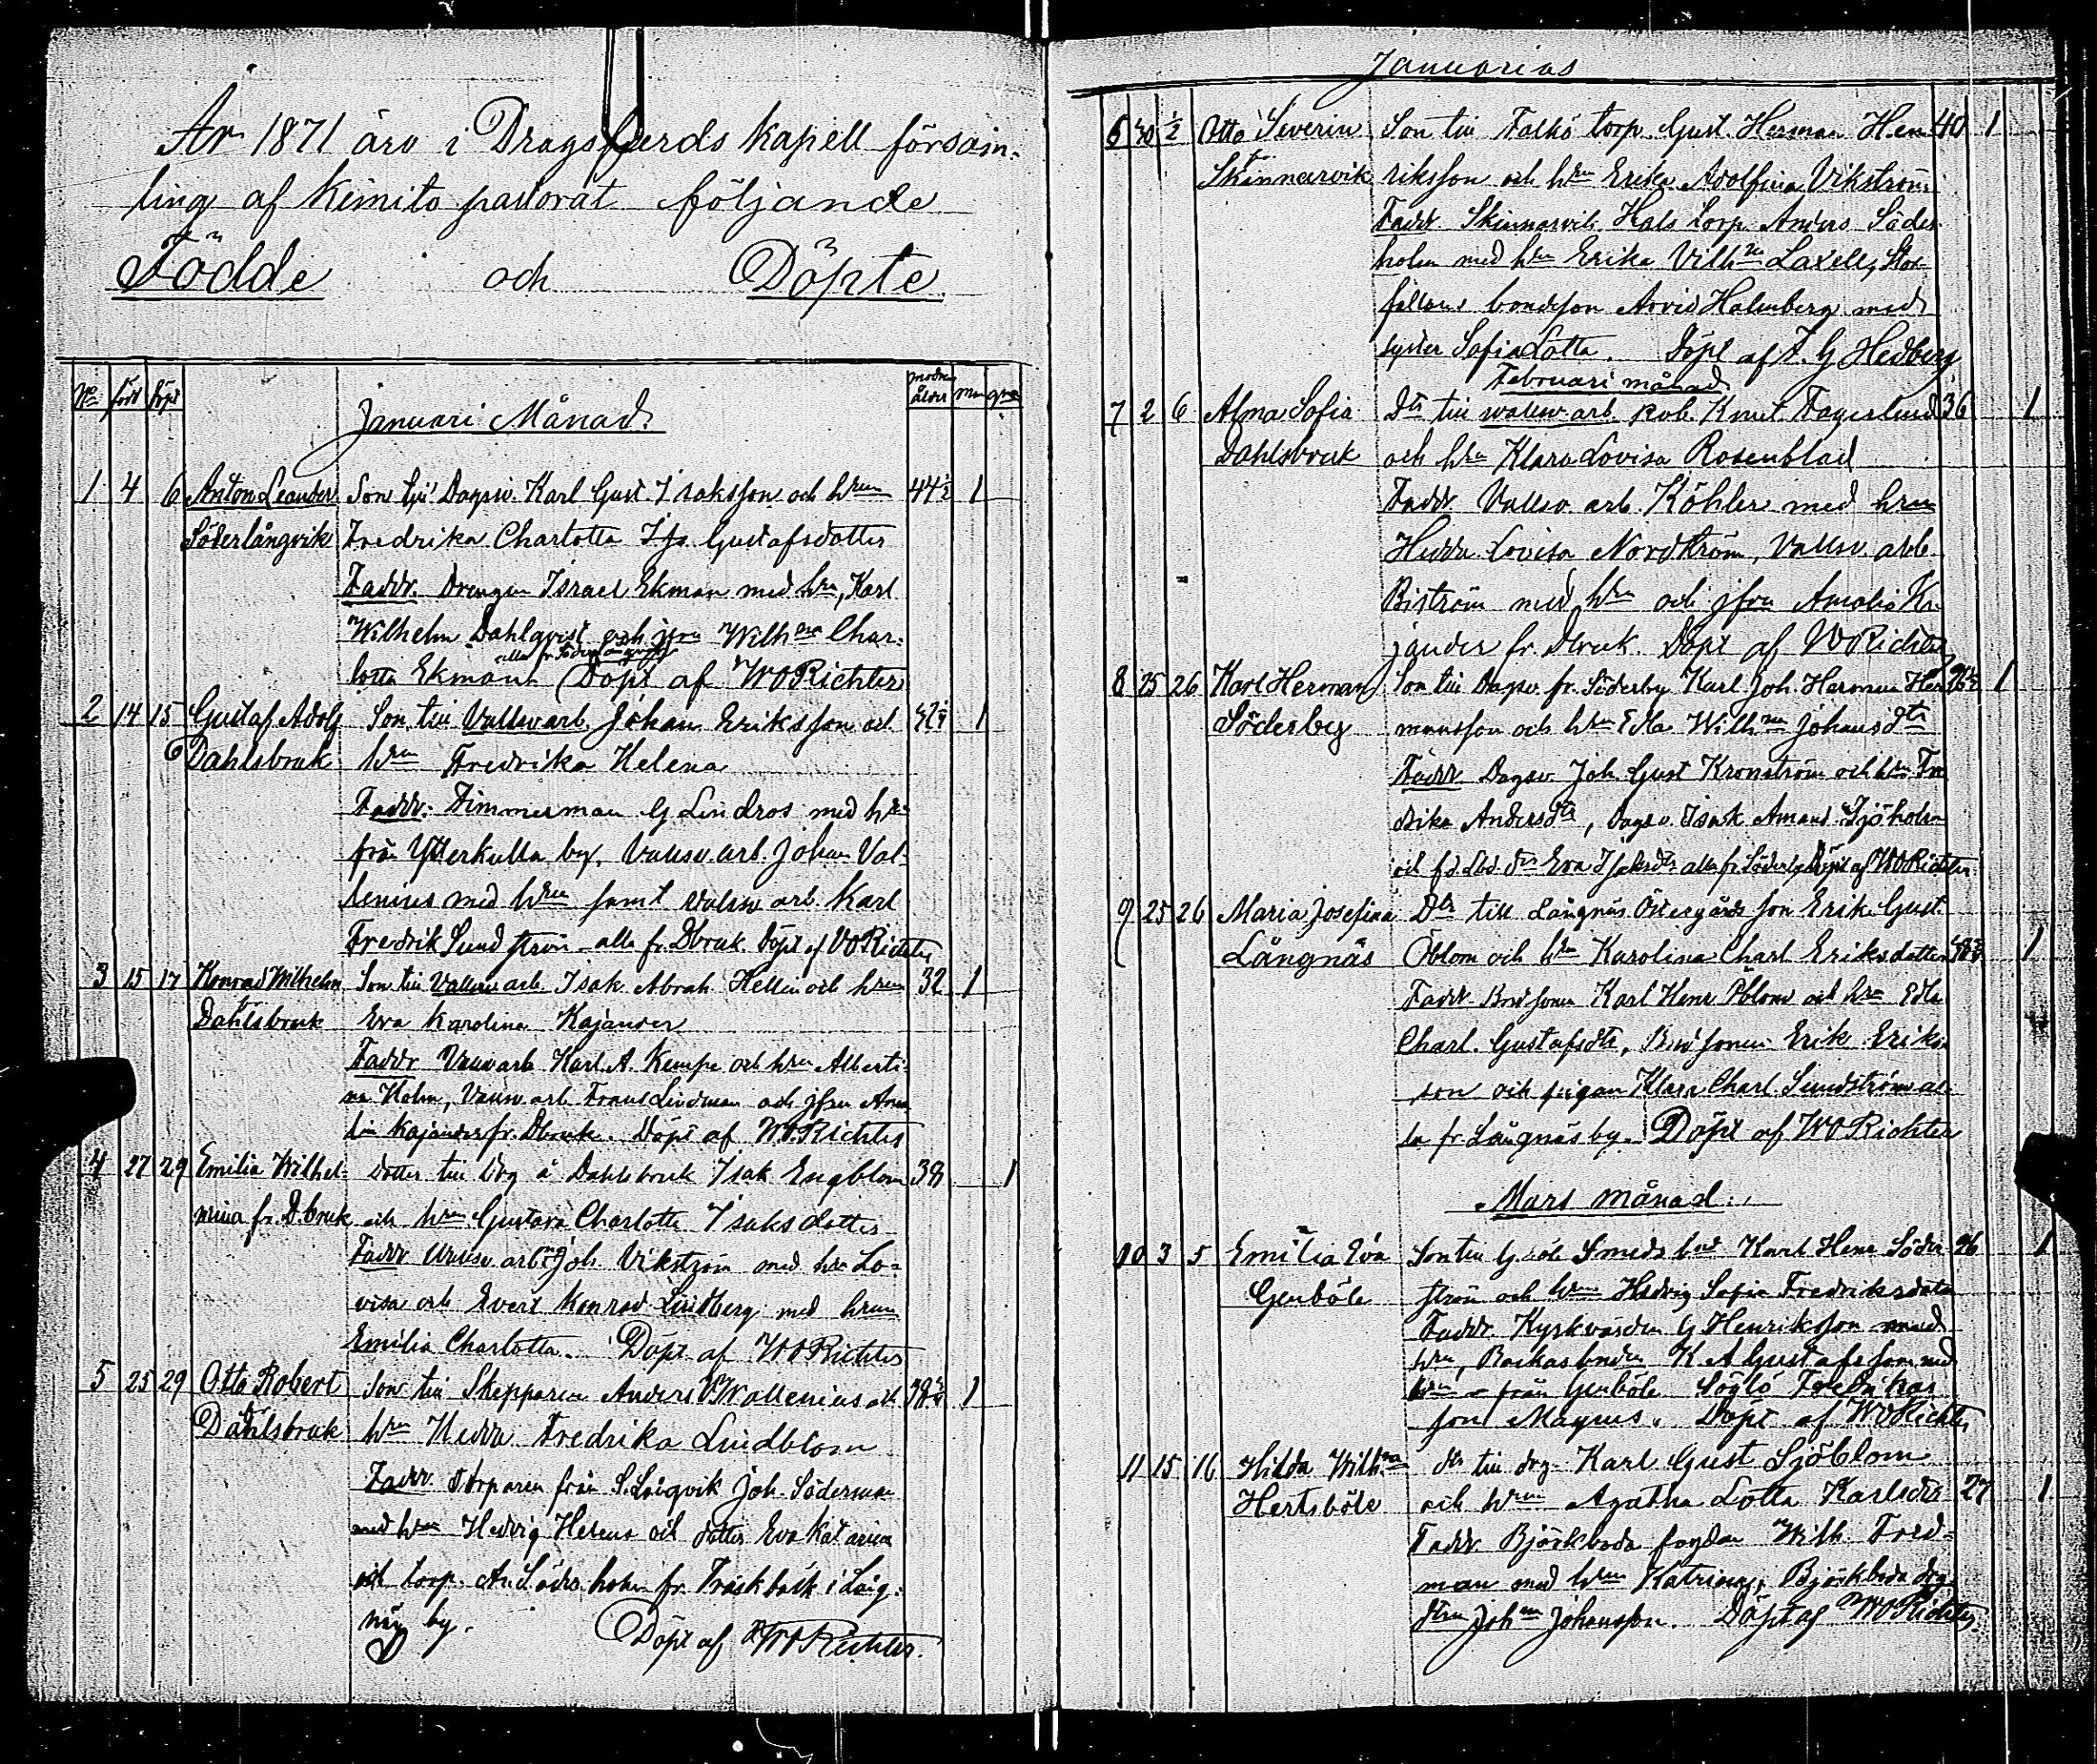 År 1871 äro i Dragsfjerds kapell församling
ling af Kimito pastorat följande
Födde och Döpte
No född döpt modrens ålder man qvin
Januari Månad
1 4 6 Anton Leander Son till Dagsv. Karl Gust. Isaksson och hrun 44½ 1
Söderlångvik Fredrika Charlotta Gustafsdotter
Faddr. Drengen Israel Ekman med hru, Karl
Wilhelm Dahlqvist och jfru Wilhna Char-
alla fr Söderlångvik
lotta Ekman Döpt af WO Richter
2 14 15 Gustaf Adolf Son till Vallsv arb. Johan Eriksson och 1
Dahlsbruk hrun Fredrika Helena
Faddr. Timmerman G Lindros med hru
från Ytterkulla by, Vallsv. arb. Johan Val-
lenius med hrun samt Valsv arb. Karl
Fredrik Sundström alla fr. Dbruk. Döpt af WO Richter
3 15 17 Konrad Wilhelm Son till Vallsv arb. Isak Abrah Hellin och hrun 32 1
fr Dahlsbruk Eva Karolina Kajander
Faddr Vallsv arb Karl A. Kempe och hrun Alberti-
na Holm, Vallsv arb. Frans Lindman och jfru Ama
lia Kajander fr. Dbruk. Döpt af WO. Richter
4 27 29 Emilia Wilhel- dotter till drg å Dahlsbruk Isak Engblom 38 1
mina fr. D.bruk och hrun Gustava Charlotta Isaksdotter
Faddr Vallsv arb. Joh. Vikström med hru Lo-
visa och Evert Konrad Lindberg med hrun
Emilia Charlotta. Döpt af WO Richter
5 25 29 Otto Robert Son till Skepparen Anders W Wallenius och 1
fr Dahlsbruk hrun Hedda Fredrika Lindblom
Faddr. Torparen från S.Långvik Joh. Söderman
med hrun Hedvig Helena och dotter Eva Katarina
och torp. An. Söderholm fr. Träskbäck i Lång-
näs by. Döpt af WO Richter.
Januarius
6 30 ½ Otto Severin Son till Falkö torp. Gust. Herman Hen- 40 1
fr Skinnarvik riksson och hrun Erika Adolfina Vikström
Faddr Skinnarvik Hals torp. Anders Söder-
holm med hrun Erika Vilhna Laxell,
bondeson Arvid Holmberg med
syster Sofia Lotta. Döpt af F. G Hedberg
Februari månad
7 2 6 Alma Sofia Dtr till vallsv arb. Rob. Knut Fagerlund 36 1
Dahlsbruk och hru Klara Lovisa Rosenblad
Faddr Vallsv. arb. Köhler med hrun
Hedda Lovisa Nordström, Vallsv. arb.
Biström med hrun och jfru Amalia Ka-
jander fr. Dbruk. Döpt af WO Richter
8 25 26 Karl Herman Son till Dagsv. fr. Söderby Karl Joh. Herman Her- 26½ 1
Söderby mansson och hrun Eda Wilhna Johansdtr
Faddr Dagsv. Joh. Gust Kronström och hru Fre
drika Andersdtr, Dagsv. Isak Amand. Sjöholm
och Eva alla fr Söderby Döpt af WO Richter
9 25 26 Maria Josefina Dtr till Långnäs Östergårds son Erik Gust. 1
Långnäs Öblom och hrun Karolina Charl Eriksdotter
Faddr Bndsonen Karl Henr Öblom och hru Eda
Charl. Gustafsdtr, Bndsonen Erik Eriks-
son och pigan Klara Charl. Sundström al-
la fr. Långnäs by. Döpt af WO Richter
Mars månad
10 3 5 Emilia Eva Son till G böle Smeds bnd Karl Henr Söder- 26 1
Genböle ström och hrun Hedvig Sofia Fredriksdotter
Faddr. Kyrkvärden G Henriksson med
hru, Backas bnden K A Gustafsson med
hrun från Genböle Söglö Fredrikas
son Magnus. Döpt af WO Richter
11 15 16 Hilda Wilhna dtr till drg. Karl Gust Sjöblom
Hertsböle och hrun Agatha Lotta Karlsdtr 27 1
Faddr. Björkboda fogden Wilh. Fred-
man med hrun Katrina, Björkboda drg.
Johan Johansson. Döpt af WO Richter